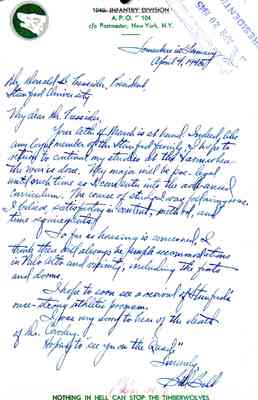 104th INFANTRY DIVISION
A.P.O. 104
c/o Postmaster, New York, N.Y.
PRESIDENT'S
Somewhere in Germany
April 9, 1945
Donald B. Tresidder, President
Stanford University
My dear Dr. Tresidder,
Your letter of March is at hand. Indeed, like
any loyal member of the Stanford family, I hope to
return to continue my studies at the Farm when
the war is done. My major will be pre-legal
until such time as I can enter into the advanced
curriculum. The course of study I was pursuing was,
I believe, satisfactory in content, method, and
time requirements.
So far as housing is concerned, I
think there will always be ample accommodations
in Palo Alto and vicinity, including the frats
and dorms.
I hope to soon see a revival of Stanford's
once-strong athletic program.
I was very sorry to hear of the death
of Dr.
Hoping to see you on the Quad,
Sincerely,
NOTHING IN HELL CAN STOP THE TIMBERWOLVES